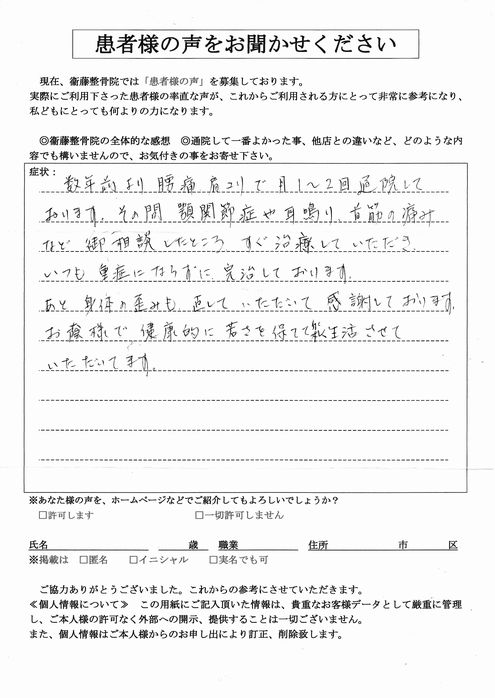 患者様の声をお聞かせください
現在、衞藤整骨院では「患者様の声」を募集しております。
実際にご利用下さった患者様の率直な声が、これからご利用される方にとって非常に参考になり、
私どもにとっても何よりの力になります。
◎衞藤整骨院の全体的な感想　◎通院して一番よかった事、他店との違いなど、どのような内
容でも構いませんので、お気付きの事をお寄せ下さい。
症状：
数年前より 腰痛 肩コリで 月1～2回 通院して
おります。その間 顎関節症や耳鳴り、首筋の痛み
など 御相談したところ すぐ治療していただき、
いつも 重症にならずに 完治しております。
あと 身体の歪みも 直して いただいて 感謝しております。
お蔭様で 健康的に 若さを保てて 生活させて
いただいてます。
※あなた様の声を、ホームページなどでご紹介してもよろしいでしょうか？
□許可します　□一切許可しません
氏名　歳　職業　住所　市　区
※掲載は　□匿名　□イニシャル　□実名でも可
ご協力ありがとうございました。これからの参考にさせていただきます。
≪個人情報について≫　この用紙にご記入頂いた情報は、貴重なお客様データとして厳重に管理
し、ご本人様の許可なく外部への開示、提供することは一切ございません。
また、個人情報はご本人様からのお申し出により訂正、削除致します。